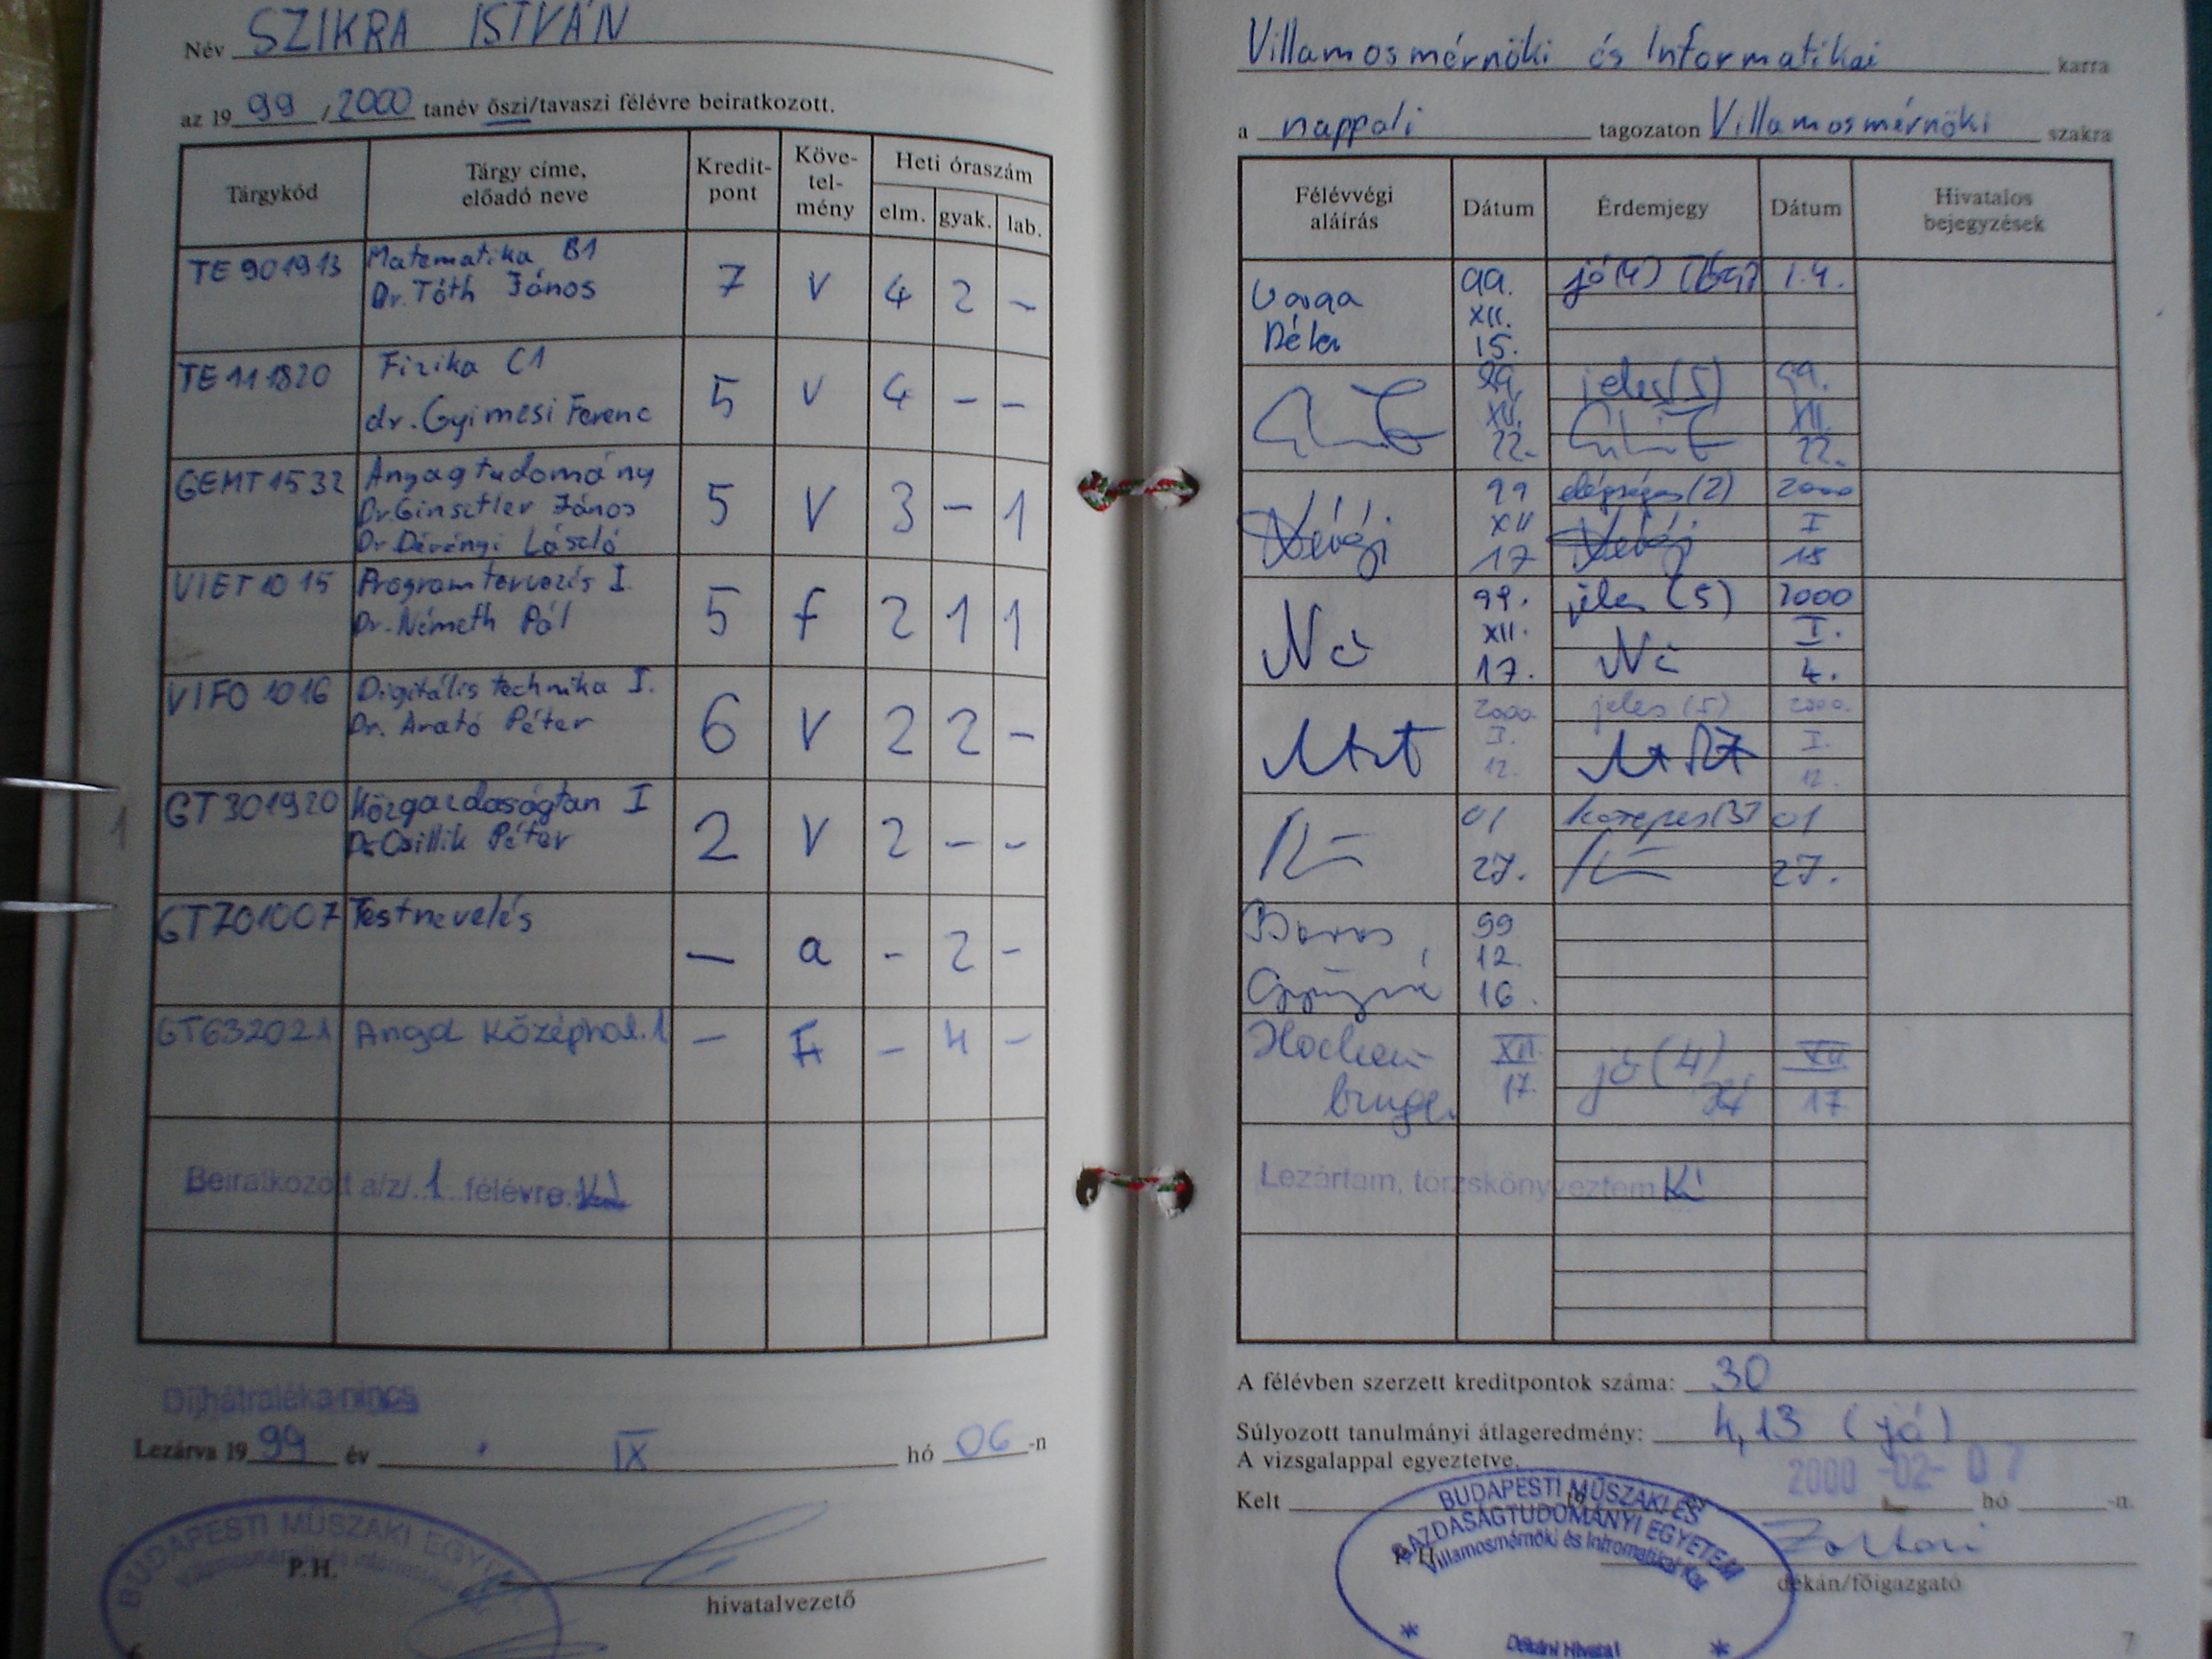 Név SZIKRA ISTVÁN
az 19 99 / 2000 tanév őszi/tavaszi félévre beiratkozott.
Tárgykód Tárgy címe, előadó neve Kredit-pont Köve-tel-mény Heti óraszám
elm. gyak. lab.
TE 901913 Matematika B1 7 V 4 2 –
Dr. Tóth János
TE 111820 Fizika C1 5 V 4 – –
dr. Gyimesi Ferenc
GEMT 1532 Anyagtudomány 5 V 3 – 1
Dr. Ginsztler János
Dr. Dévényi László
VIET 1015 Programtervezés I. 5 f 2 1 1
Dr. Németh Pál
VIFO 1016 Digitális technika I. 6 V 2 2 –
Dr. Arató Péter
GT 301920 Közgazdaságtan I 2 V 2 – –
Dr. Csillik Péter
GT701007 Testnevelés — a – 2 –
GT632021 Angol Középhal. 1 – F – 4 –
Beiratkozott a/z/ 1 félévre.
Díjhátraléka nincs
Lezárva 19 99 év IX hó 06 -n
BUDAPESTI MŰSZAKI EGYETEM
P.H.
hivatalvezető
Villamosmérnöki és Informatikai karra
a nappali tagozaton Villamosmérnöki szakra
Félévvégi aláírás Dátum Érdemjegy Dátum Hivatalos bejegyzések
Varga Béla 99. XII. 15. jó(4) 1.4.
99. XII. 22. jeles(5) 99. XII. 22.
99 XII 17 elégséges(2) 2000 I 18
99. XII. 17. jeles (5) 2000 I. 4.
2000. I. 12. jeles (5) 2000. I. 12.
01 27. közepes(3) 01 27.
Boros Györgyné 99 12. 16.
XII. 17. jó(4) XII 17
Lezártam, törzskönyveztem
A félévben szerzett kreditpontok száma: 30
Súlyozott tanulmányi átlageredmény: 4,13 (jó)
A vizsgalappal egyeztetve.
2000 -02- 07
Kelt hó -n.
BUDAPESTI MŰSZAKI ÉS
GAZDASÁGTUDOMÁNYI EGYETEM
Villamosmérnöki és Informatikai Kar
P.H.
dékán/főigazgató
Dékáni Hivatal
7